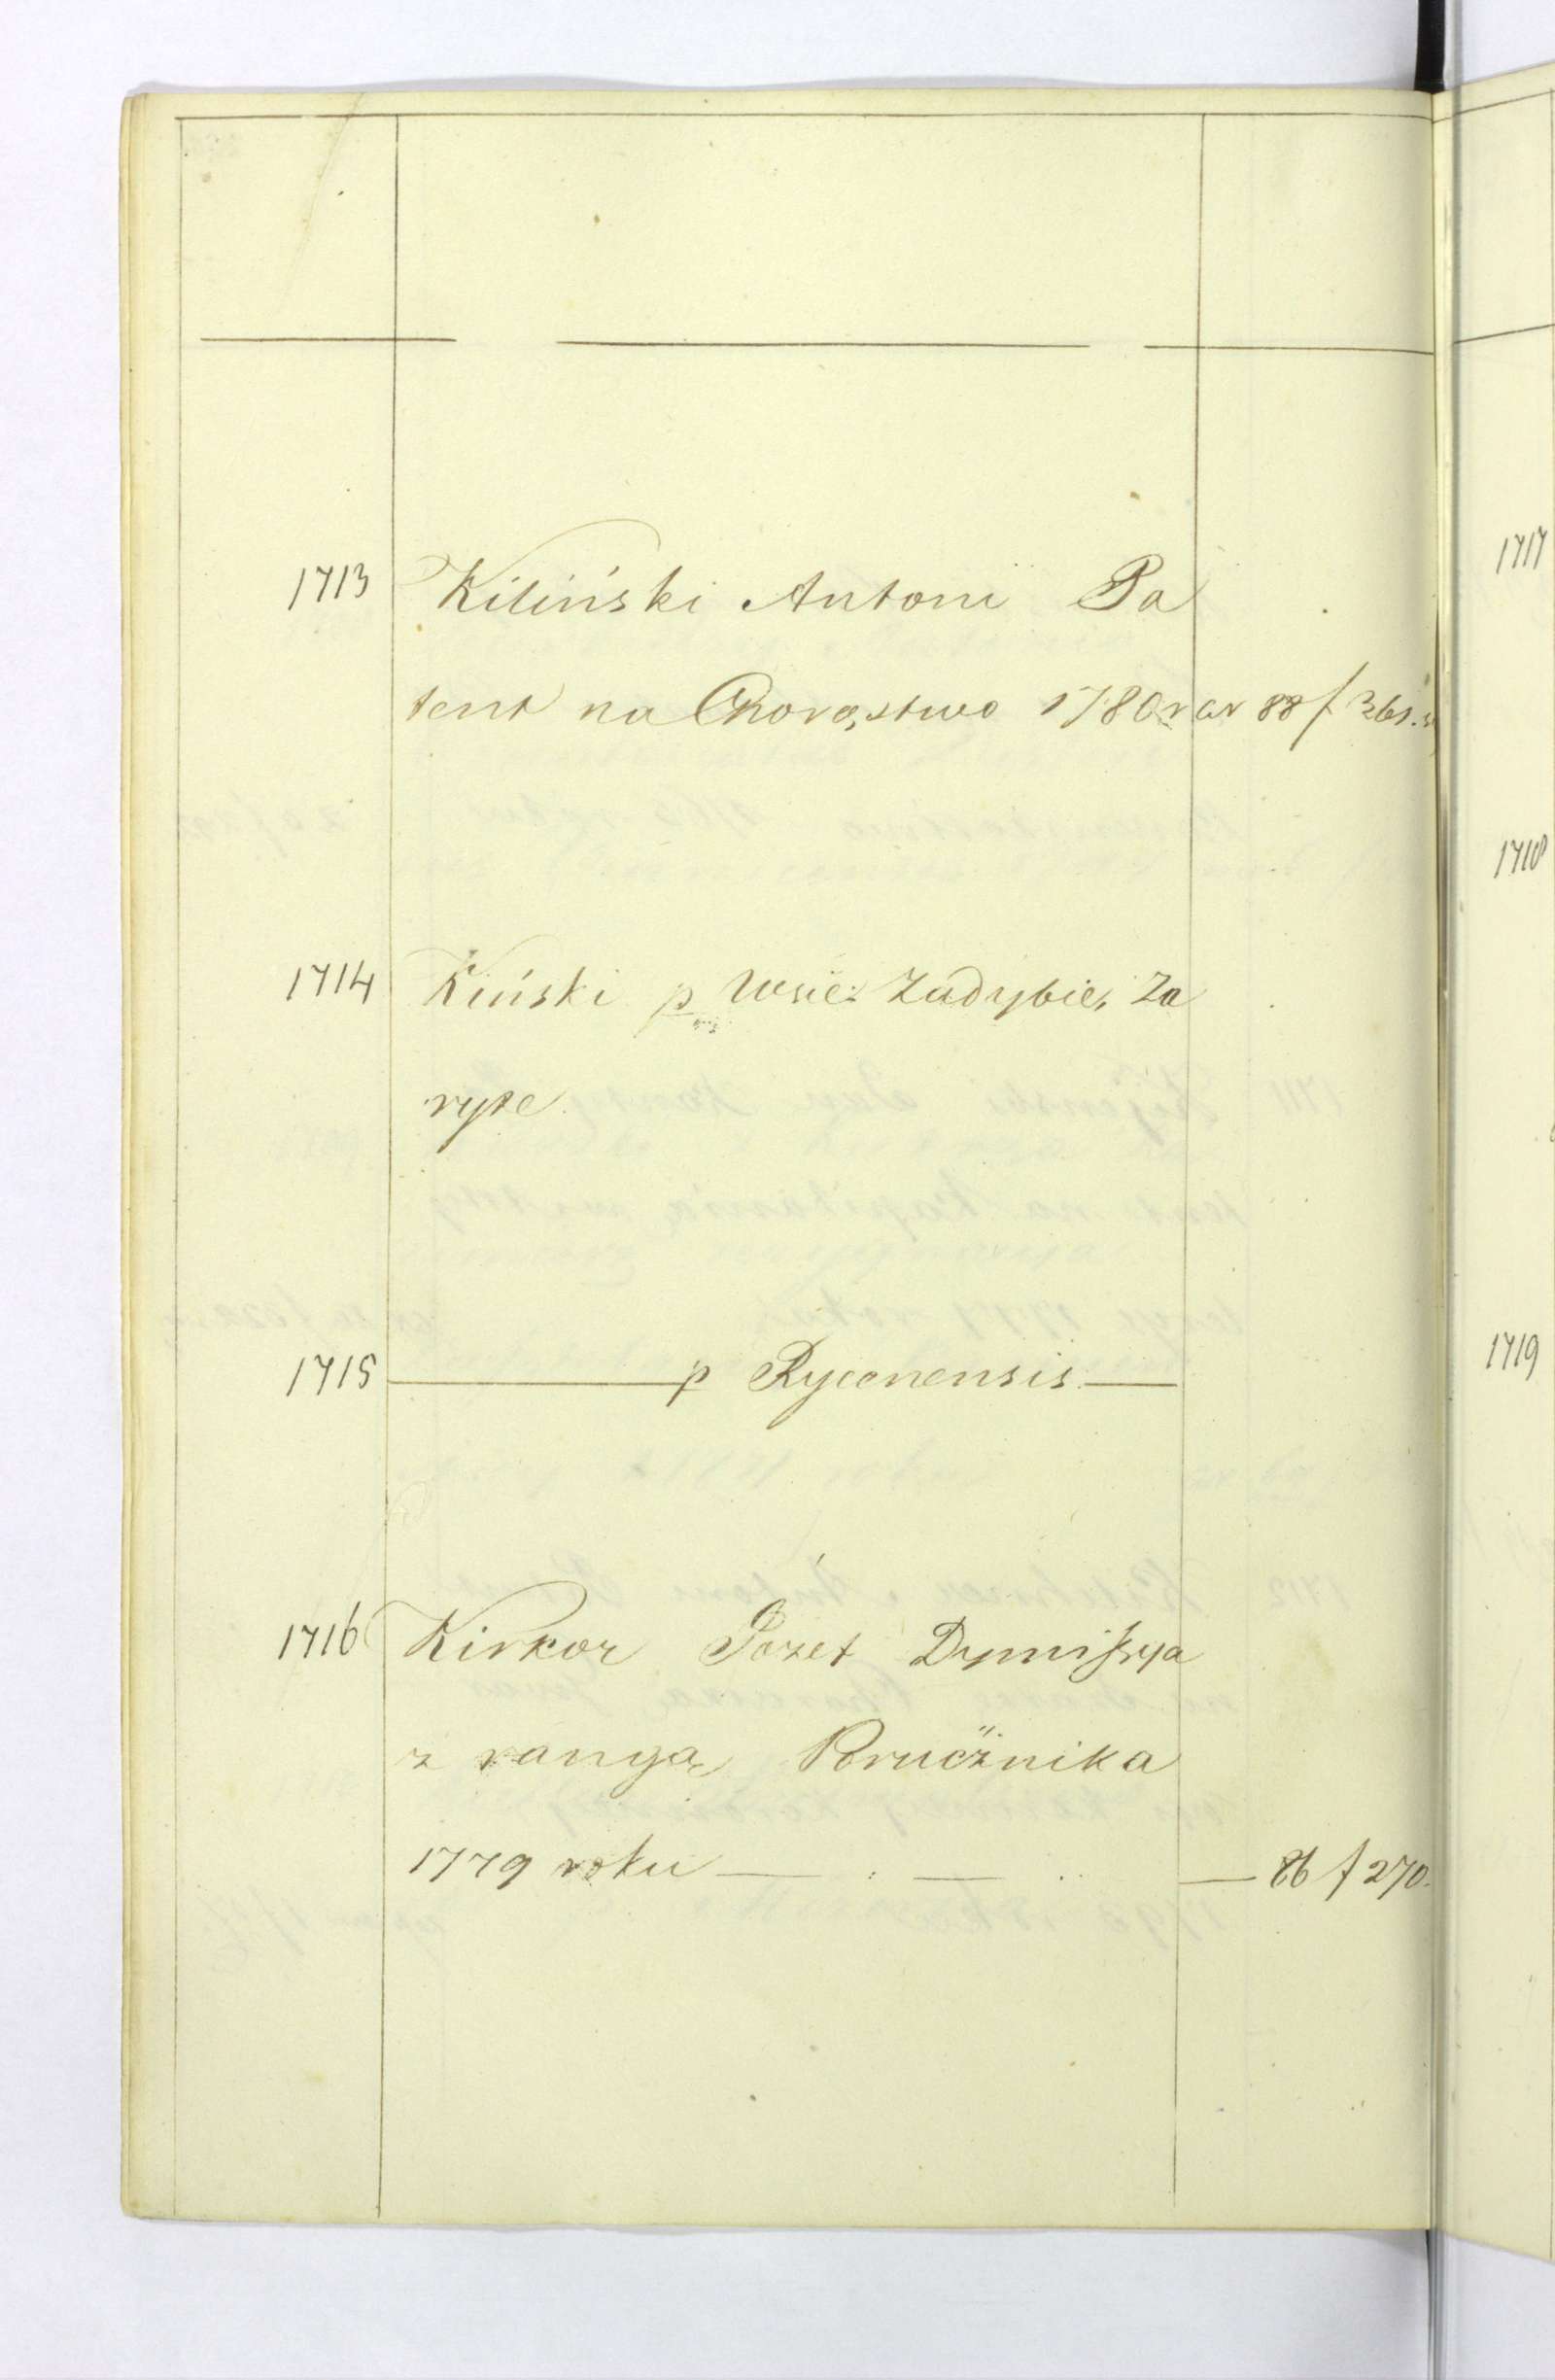 1713 Kiliński Antoni Pa
tent na Chorąstwo 1780 r ar 88 f 361.
1714 Kiński p Wsie: Zadybie, Za
ryte
1715 — p Rycenensis —
1716 Kirkor Jozef Dymissya
z rangą Porucżnika
1779 roku — : — .. — 86 f 270.
1717
1718
1719